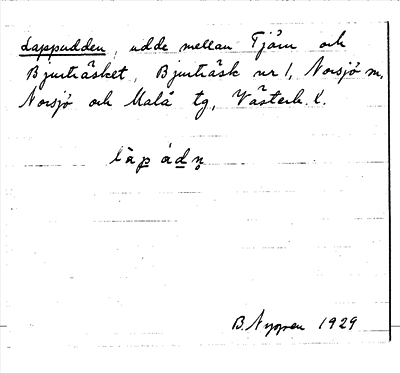 Lappudden, udde mellan Tjärn och
Bjurträsket, Bjurträsk nr 1, Norsjö sn,
Norsjö och Malå tg, Västerb. l.
B. Nygren 1929